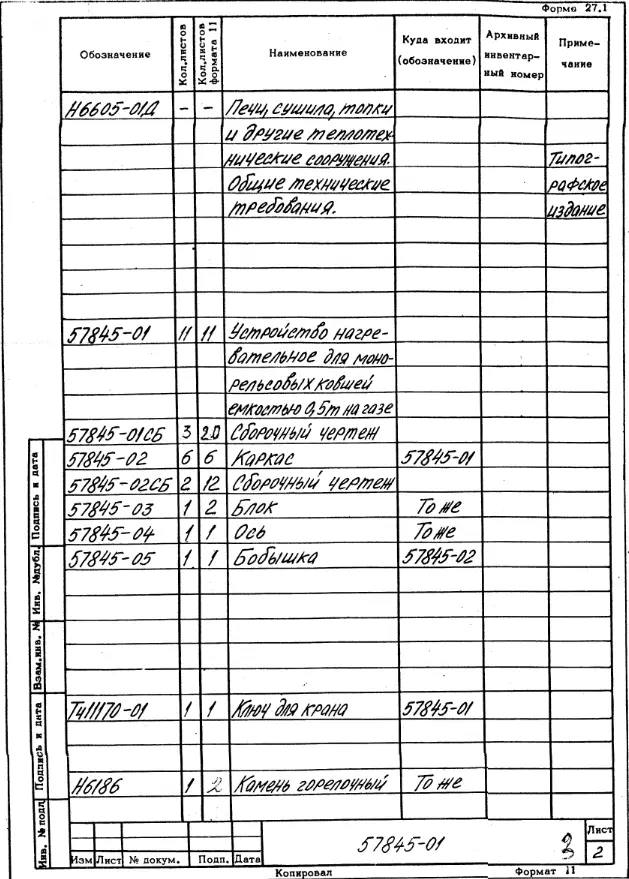 Форма 27.1
Обозначение Кол.листов Кол.листов формата 11 Наименование Куда входит (обозначение) Архивный инвентарный номер Примечание
Н6605-01Д - - Печи, сушила, топки
и другие теплотех-
нические сооружения. Типог-
Общие технические рафское
требования. издание
57845-01 11 11 Устройство нагре-
вательное для моно-
рельсовых ковшей
емкостью 0,5т на газе
57845-01СБ 3 20 Сборочный чертеж
57845-02 6 6 Каркас 57845-01
57845-02СБ 2 12 Сборочный чертеж
57845-03 1 2 Блок То же
57845-04 1 1 Ось То же
57845-05 1 1 Бобышка 57845-02
Т411170-01 1 1 Ключ для крана 57845-01
Н6186 1 2 Камень горелочный То же
Подпись и дата
Инв. №дубл.
Взам.инв. №
Подпись и дата
Инв. №подл
57845-01 3 Лист
2
Изм Лист № докум. Подп. Дата
Копировал Формат 11